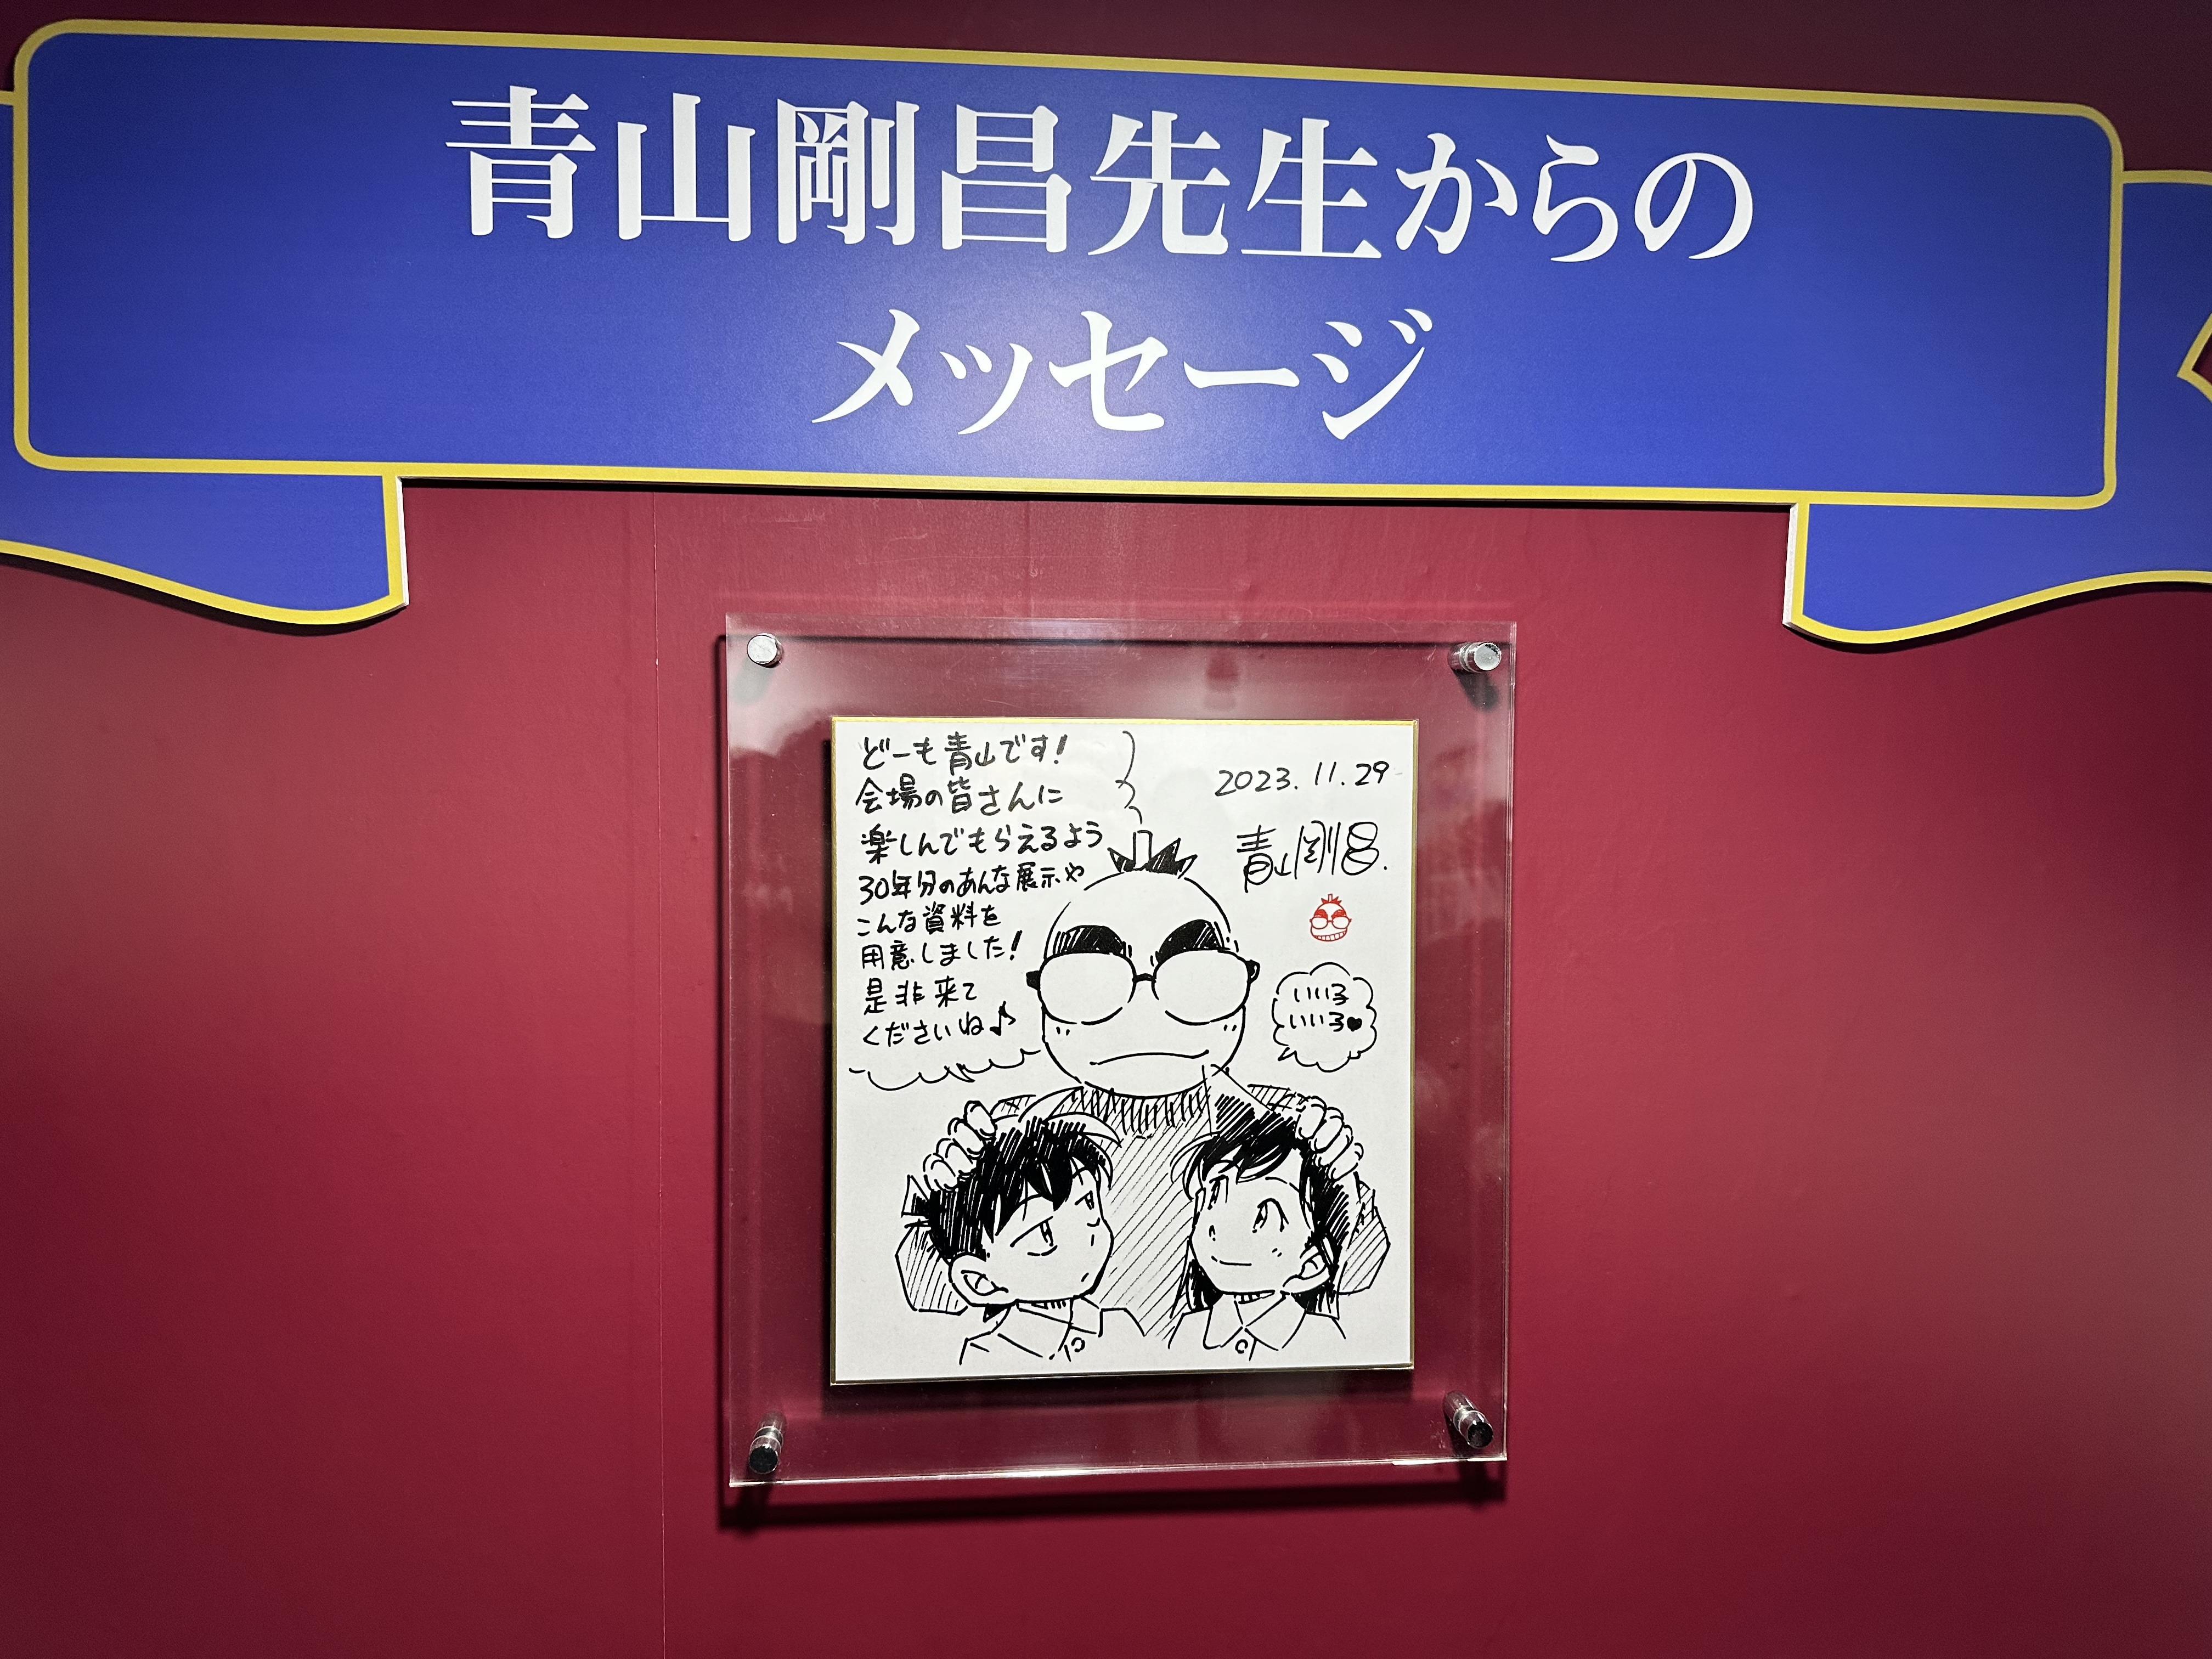 青山剛昌先生からの
メッセージ
どーも青山です!
会場の皆さんに
楽しんでもらえるよう
30年分のあんな展示や
こんな資料を
用意しました!
是非来て
くださいね♪
2023.11.29
青山剛昌.
いい子
いい子♥